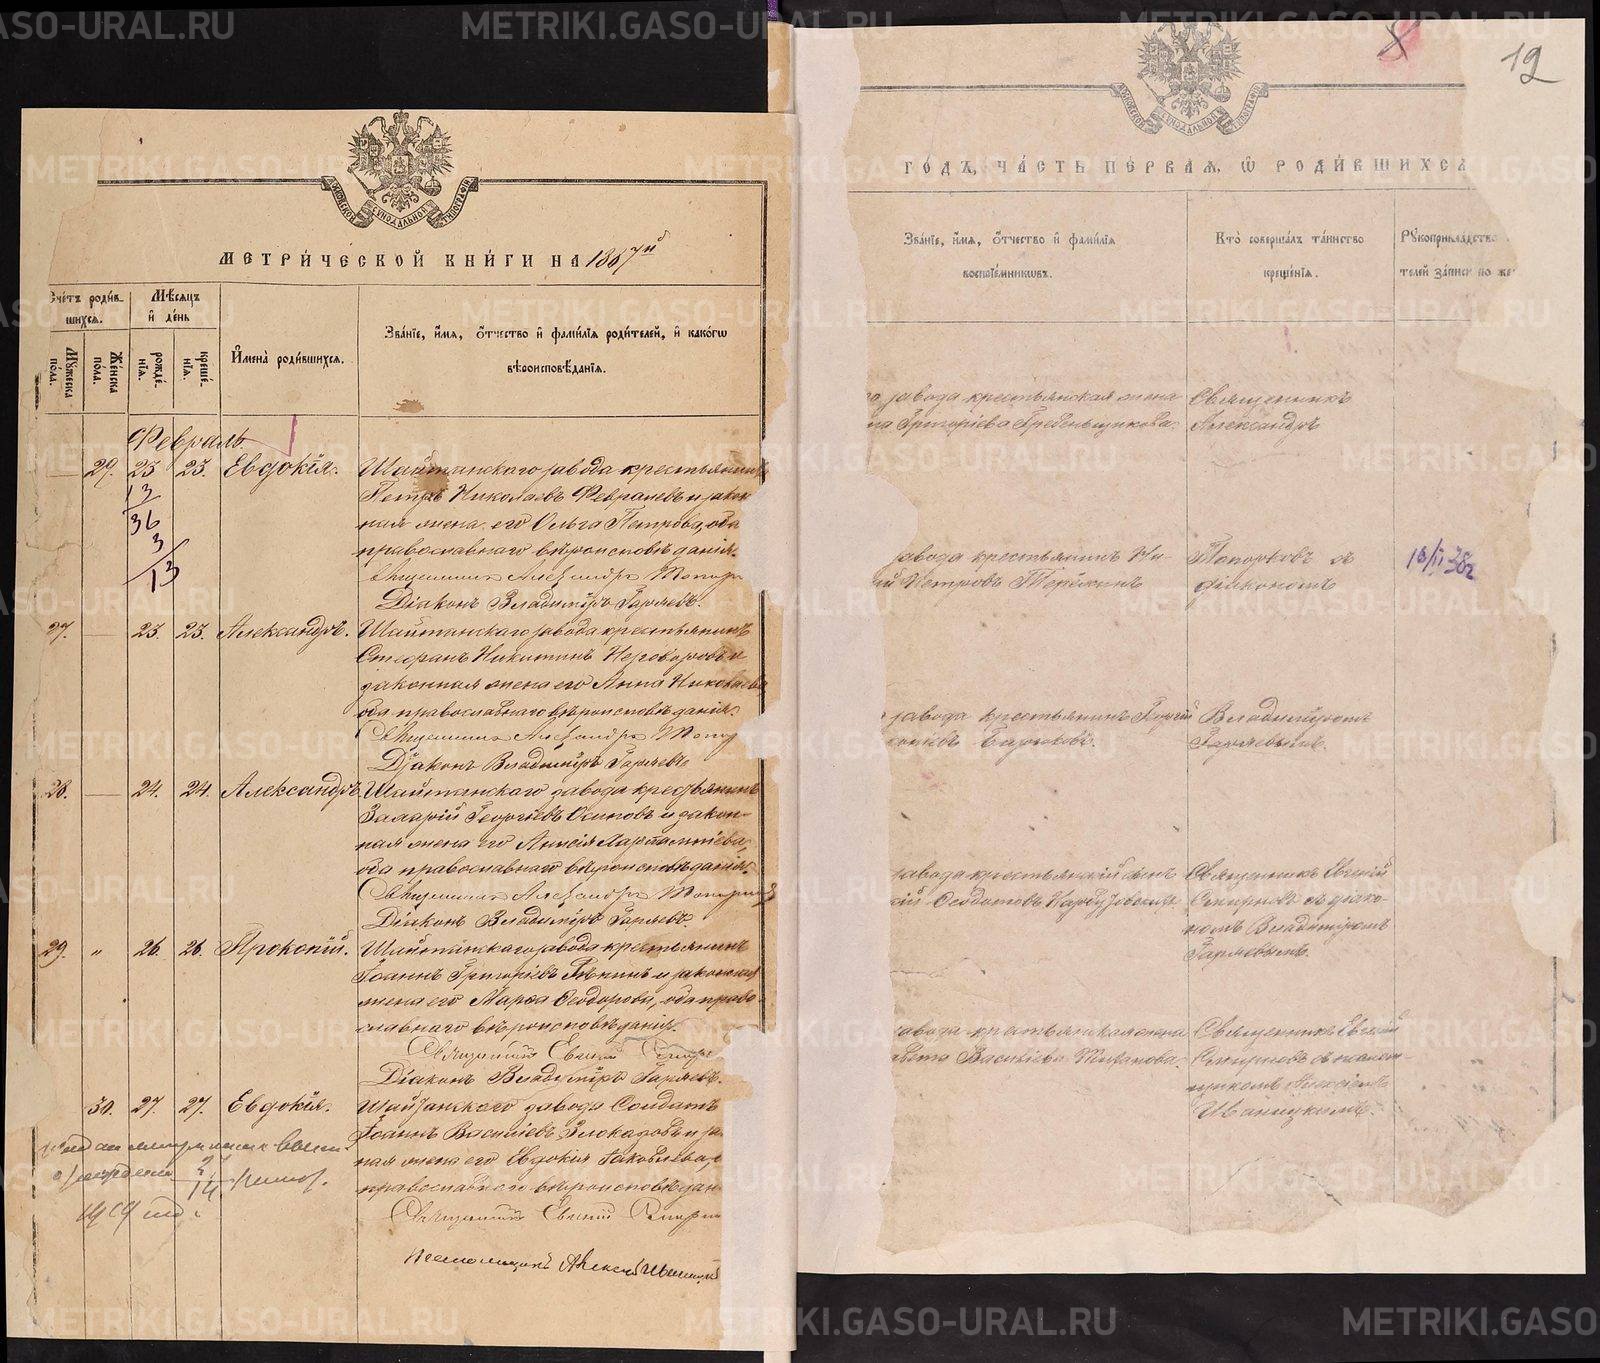 METRIKI.GASO-URAL.RU
МЕТРИ́ЧЕСКОЙ КНИ́ГИ НА 1887й
Сче́тъ роди́в-
шихся.
Мѣ́сяцъ
и҆ де́нь
Му́жеска
по́ла.
Же́нска
по́ла.
рожде́-
нїѧ.
креще́-
нїѧ.
И҆мена̀ роди́вшихсѧ.
Зва́нїе, и҆́мѧ, ѻ҆́тчество и҆ фами́лїѧ роди́телей, и҆ како́гѡ
вѣроисповѣ́данїѧ.
Февраль
29. 23 23. Евдокія. Шайтанскаго завода крестьянинъ
Петръ Николаевъ Февралевъ и закон
ная жена его Ольга Петрова, оба
православнаго вѣроисповѣданія.
13
36
3
13
Священникъ Александръ Топор
Діаконъ Владиміръ Гаряевъ.
27. 23. 23. Александръ. Шайтанскаго завода крестьянинъ
Стефанъ Никитинъ и
законная жена его Анна Николаева,
оба православнаго вѣроисповѣданія.
Священникъ Александръ Топор
Діаконъ Владиміръ Гаряевъ
28. 24. 24. Александръ. Шайтанскаго завода крестьянинъ
Георгіевъ Осиповъ и закон-
ная жена его Анисія Харлампіева,
оба православнаго вѣроисповѣданія.
Священникъ Александръ Топорковъ
Діаконъ Владиміръ Гаряевъ.
29. " 26. 26. Прокопій. Шайтанскаго завода крестьянинъ
Іоаннъ Григоріевъ и законная
жена его Марѳа Ѳеодорова, оба право-
славнаго вѣроисповѣданія.
Священникъ Евгеній Смирн
Діаконъ Владиміръ Гаряевъ.
30. 27. 27. Евдокія. Шайтанскаго завода Солдатъ
Іоаннъ Васильевъ Злоказовъ и за
ная жена его Евдокія Іаковлева,
православнаго вѣроисповѣдан
Священникъ Евгеній Смирн
Псаломщикъ Алексій Иваницкій
14
1919
12
ГО́ДЪ, ЧА́СТЬ ПЕ́РВАѦ, Ѽ РОДИ́ВШИХСѦ
Зва́нїе, и҆́мѧ, ѻ҆́тчество и҆ фами́лїѧ
воспрїе́мникѡвъ.
Кто̀ соверша́лъ та́инство
креще́нїѧ.
Рꙋкоприкла́дство
телей за́писи по же
завода крестьянская жена
на Григоріева Гребенщикова.
Священникъ
Александръ
завода крестьянинъ Ни-
Петровъ
Топорковъ съ
діакономъ
завода крестьянинъ
Владиміромъ
Гаряевымъ.
завода крестьянскій сынъ
Ѳеодотовъ
Священникъ Евгеній
Смирновъ съ діако-
номъ Владиміромъ
Гаряевымъ.
завода крестьянская жена
Васильева
Священникъ Евгеній
Смирновъ съ псалом-
щикомъ Алексіемъ
Иваницкимъ.